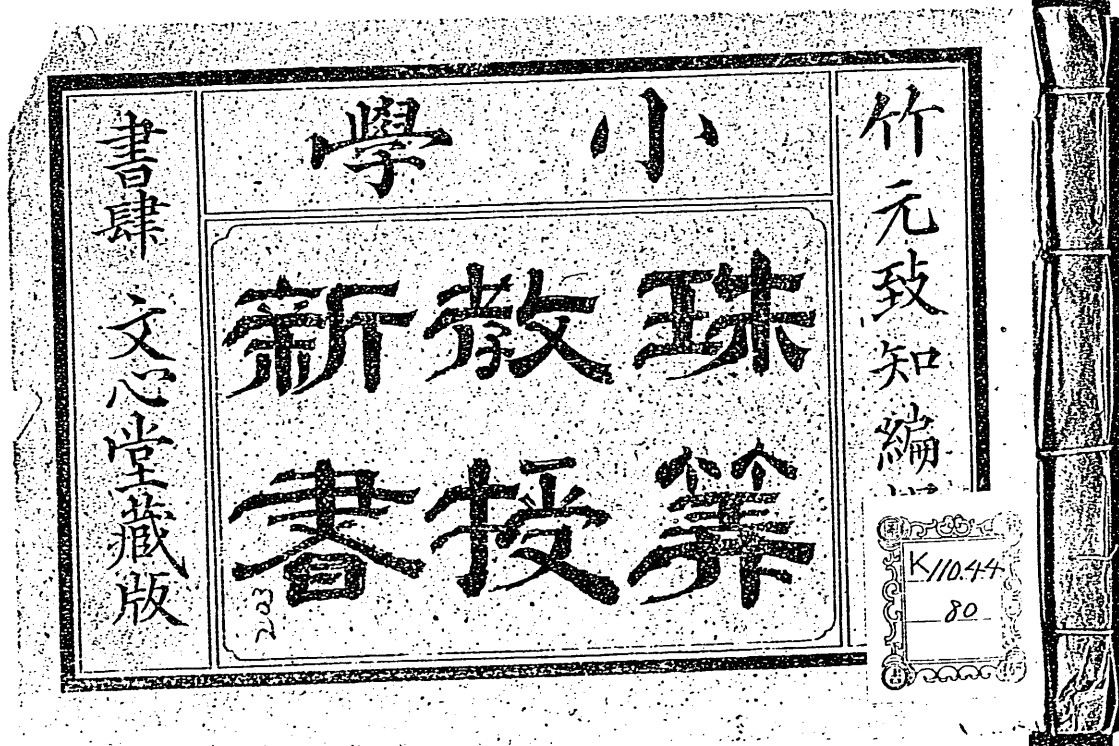 竹元致知編
小學
珠筭
教授
新書
書肆 文心堂藏版
K110.44
80
203